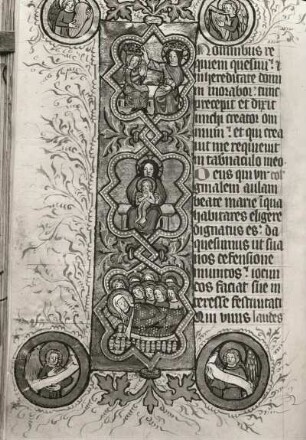 N omnibus re
quiem quesiui· ⁊
in hereditate domi
ni morabor· tunc
precepit et dixit
michi creator om
nium· ⁊ et qui crea
uit me requieuit
in tabernaculo meo
Deus qui vir
ginalem aulam
beate marie in qua
habitares eligere
dignatus es· da
quesumus ut sua
nos defensione
munitos· iocun
dos faciat sue in
teresse festiuitati
Qui viuis